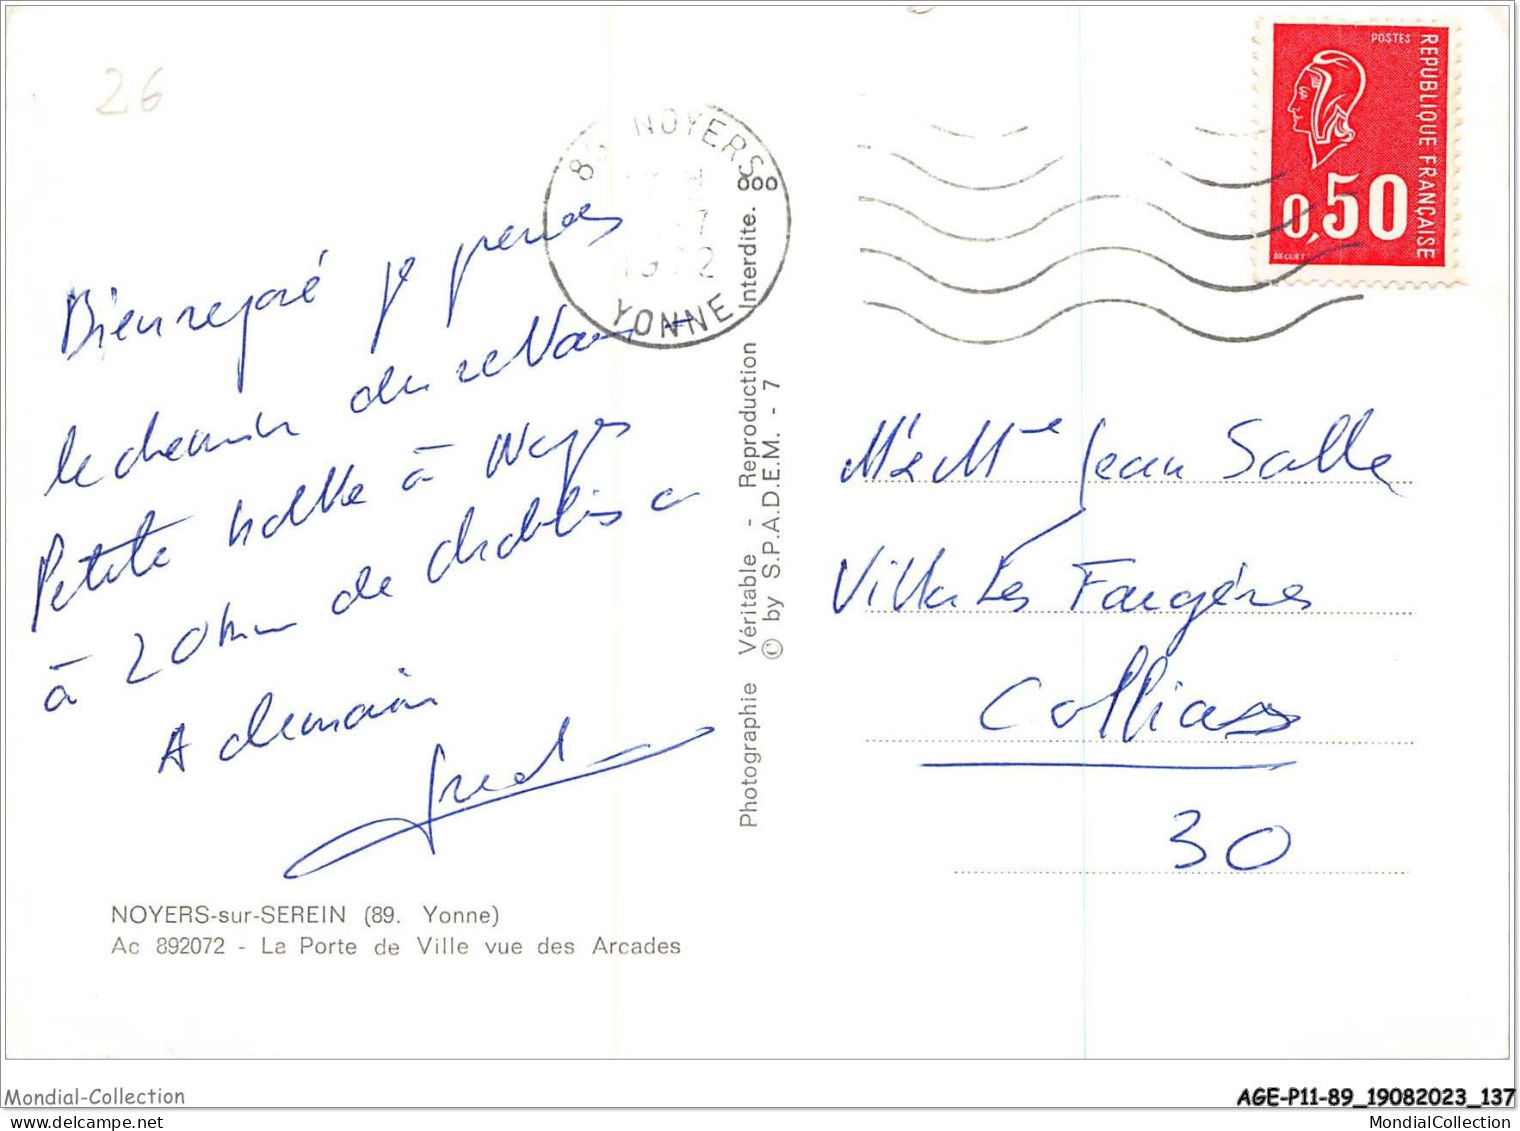 26
89 NOYERS
1972
YONNE
POSTES
REPUBLIQUE FRANÇAISE
0,50
BEQUET
Bien reposé je prends
le chemin du retour -
Petite halte à Noyers
à 20 km de Chablis
A demain
Fred
Mr & Mme Jean Salle
Villa Les Fougères
Collias
30
Photographie Véritable - Reproduction Interdite.
© by S.P.A.D.E.M. - 7
NOYERS-sur-SEREIN (89. Yonne)
Ac 892072 - La Porte de Ville vue des Arcades
Mondial-Collection
AGE-P11-89_19082023_137
MondialCollection